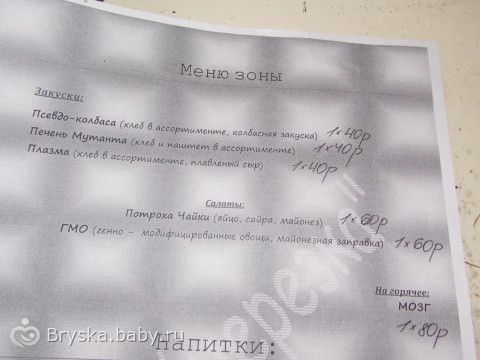 Меню зоны
Закуски:
Псевдо-колбаса (хлеб в ассортименте, колбасная закуска) 1×40р
Печень Мутанта (хлеб и паштет в ассортименте) 1×40р
Плазма (хлеб в ассортименте, плавленый сыр) 1×40р
Салаты:
Потроха Чайки (яйцо, сайра, майонез) 1×60р
ГМО (генно - модифицированные овощи, майонезная заправка) 1×60р
На горячее:
МОЗГ
1×80р
Напитки:
Bryska.baby.ru